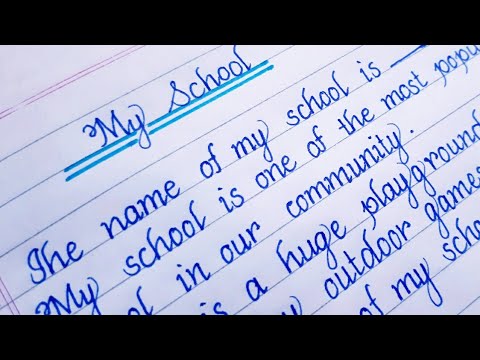 My School
The name of my school is
My school is one of the most
in our community.
is a huge playground
outdoor games
of my